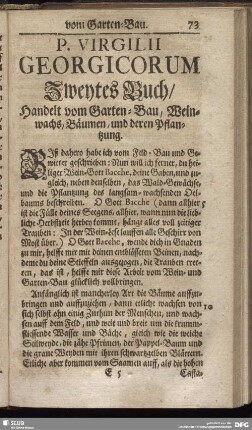 vom Garten-Bau. 73
P. VIRGILII
GEORGICORUM
Zweytes Buch/
Handelt vom Garten-Bau, Wein-
wachs, Bäumen, und deren Pflan-
tzung.
BIst dahero hab ich vom Feld-Bau und Ge-
witter geschrieben: Nun will ich ferner, du hei-
liger Wein-Gott Bacche, deine Gaben, und zu-
gleich, neben denselben, das Wald-Gewächs,
und die Pflantzung des langsam-wachsenden Oel-
baums beschreiben. O Gott Bacche (dann allhier
ist die Fülle deines Seegens, allhier, wann nun die lieb-
liche Herbstzeit herbey kommt, hängt alles voll zeitiger
Trauben: In der Wein-Lese lauffen alle Geschirr von
Most über.) O Gott Bacche, wende dich in Gnaden
zu mir, helffe mir mit deinen entblößeten Beinen, nach-
deme du deine Stieffeln ausgezogen, die Trauben tre-
ten, das ist, helffe mir diese Arbeit vom Wein- und
Garten-Bau glücklich vollbringen.
Anfänglich ist mancherley Art die Bäume auffzu-
bringen und auffzuziehen, dann etliche wachsen von
sich selbst ohn einig Zuthun der Menschen, und wach-
sen auf dem Feld, und weit und breit um die krumm-
fliessende Wasser und Bäche, gleich wie die weiche
Sallweyde, die zähe Pfrimen, der Pappel-Baum und
die graue Weyden mit ihren schwartzgelben Blättern.
Etliche aber kommen vom Saamen auff, als die hohen
E 5 Casta-
SLUB
DFG